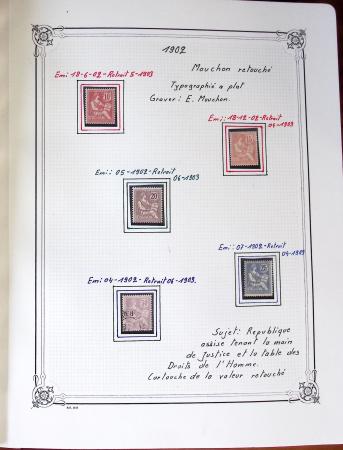 1902
Mouchon retouché
Emi: 18-6-02-Retrait 5-1903
Typographié a plat
Graver: E. Mouchon.
Emi: 18-12-02-Retrait
06-1903
Emi: 05-1902-Retrait
06-1903
20
Emi: 07-1902-Retrait
04-1903
Emi: 04-1902-Retrait 06-1903.
Sujet: Republique
assise tenant la main
de justice et la table des
Droits de l'Homme.
Cartouche de la valeur retouché